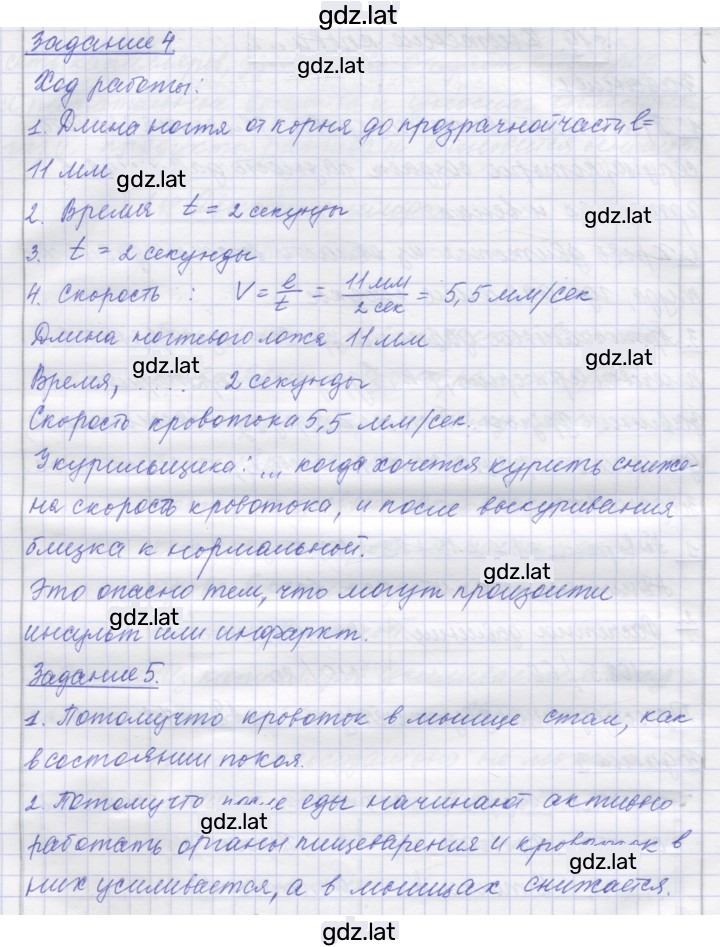 gdz.lat
Задание 4.
gdz.lat
Ход работы:
1. Длина ногтя от корня до прозрачной части l=
11 мм
gdz.lat
2. Время t = 2 секунды
gdz.lat
3. t = 2 секунды
4. Скорость : V = l/t = 11 мм/2 сек = 5,5 мм/сек
Длина ногтевого ложа 11 мм
gdz.lat
gdz.lat
Время, ..... 2 секунды
Скорость кровотока 5,5 мм/сек.
У курильщика: ... когда хочется курить сниже-
на скорость кровотока, и после выкуривания
близка к нормальной.
gdz.lat
Это опасно тем, что могут произойти
gdz.lat
инсульт или инфаркт.
Задание 5.
1. Потому что кровоток в мышце стал, как
в состоянии покоя.
2. Потому что после еды начинают активно
gdz.lat
работать органы пищеварения и кровоток в
gdz.lat
них усиливается, а в мышцах снижается.
gdz.lat